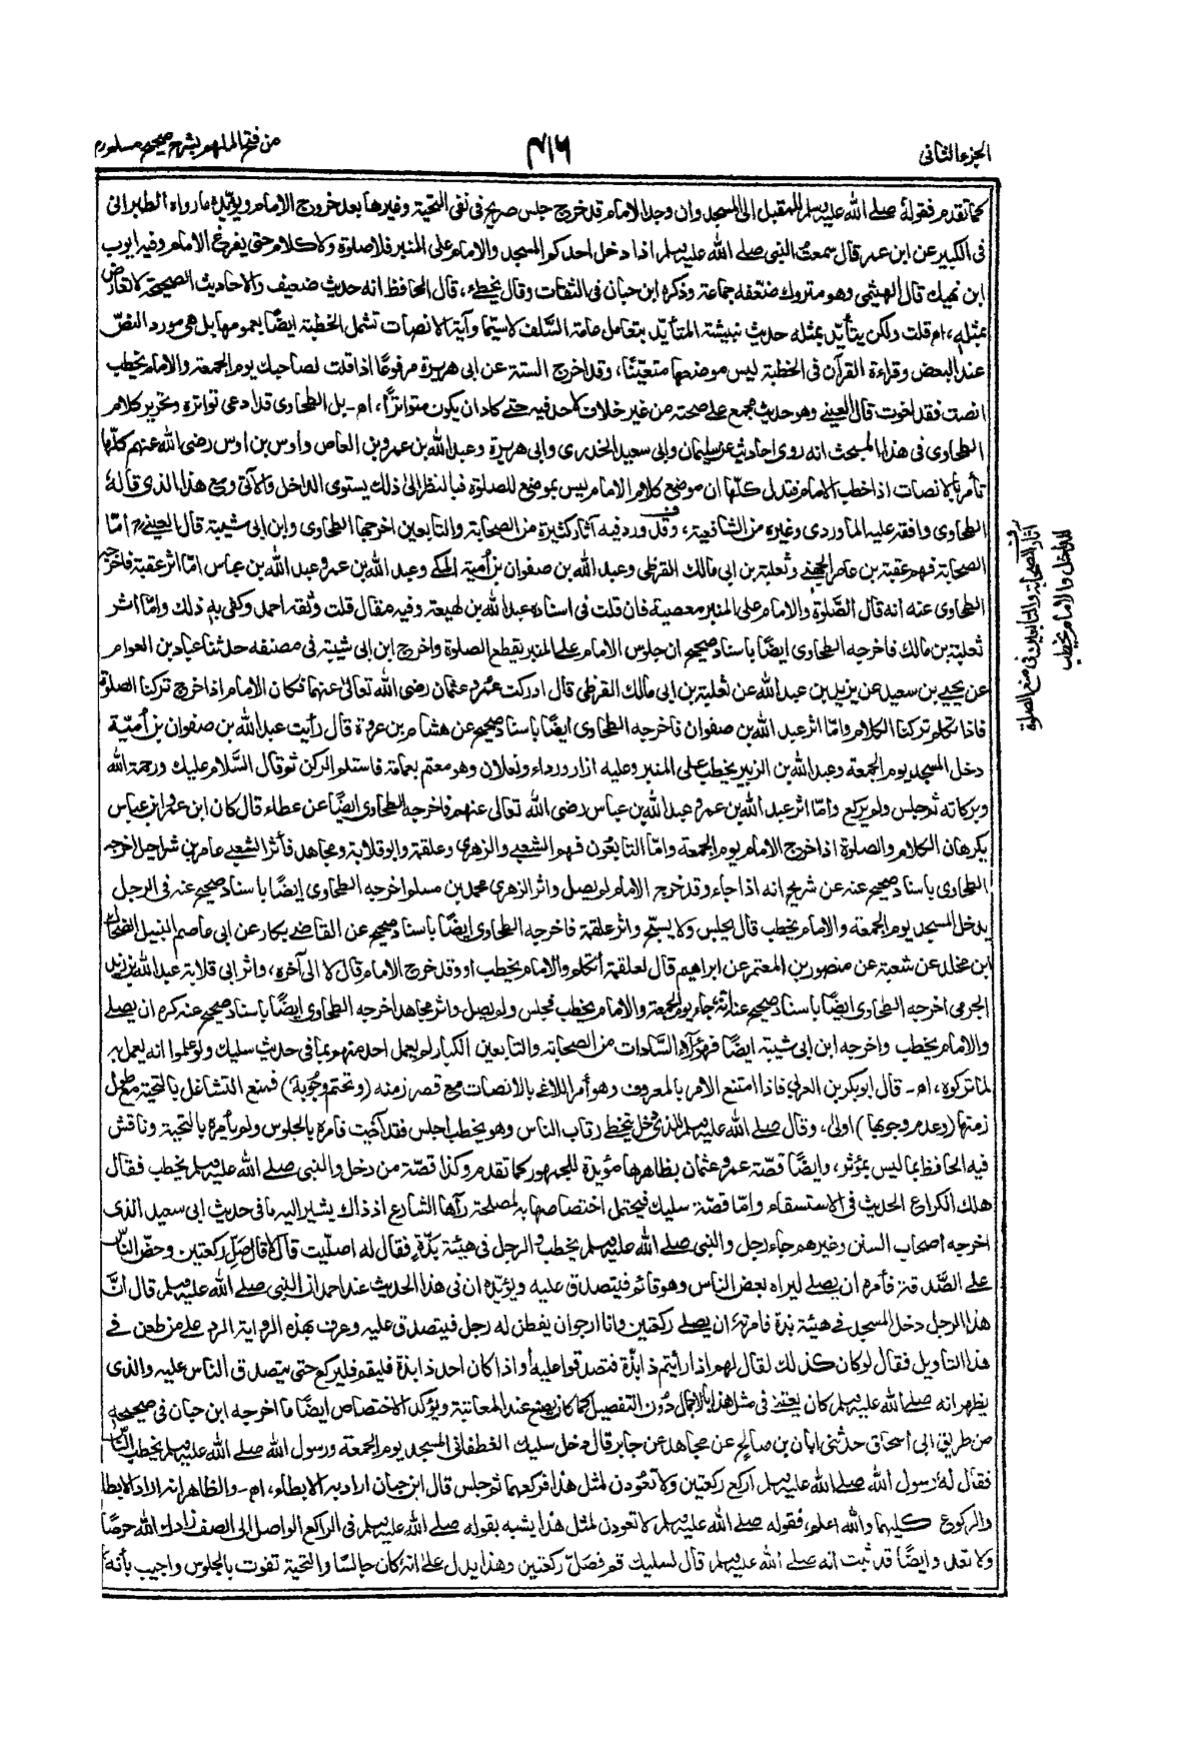 الجزء الثاني
٤١٦
من فتح الملهم بشرح صحيح مسلم
كما تقدم فقوله صلى الله عليه وسلم للمقبل الى المسجد وان وجد الامام قد خرج جلس صريح فى نفى التحية وغيرها بعد خروج الامام ويؤيده ما رواه الطبرانى
فى الكبير عن ابن عمر قال سمعت النبى صلى الله عليه وسلم اذا دخل احدكم المسجد والامام على المنبر فلا صلوة ولا كلام حتى يفرغ الامام وفيه ايوب
ابن نهيك قال الهيثمى وهو متروك ضعفه جماعة وذكره ابن حبان فى الثقات وقال يخطئ، قال الحافظ انه حديث ضعيف والاحاديث الصحيحة لا تعارض
بمثله، اه قلت ولكن يتأيد بمثله حديث نبيشة المتأيد بتعامل عامة السلف لا سيما وآية الانصات تشمل الخطبة ايضًا بعمومها بل هى مورد النص
عند البعض وقراءة القرآن فى الخطبة ليس موضعها متعينًا، وقد اخرج الستة عن ابى هريرة مرفوعًا اذا قلت لصاحبك يوم الجمعة والامام يخطب
انصت فقد لغوت قال العينى وهو حديث مجمع على صحته من غير خلاف لاحد فيه حتى كاد ان يكون متواترًا، اه ـ بل الطحاوى قد ادعى تواتره وتحرير كلام
الطحاوى فى هذا المبحث انه روى احاديث عن سليمان وابى سعيد الخدرى وابى هريرة وعبد الله بن عمرو بن العاص واوس بن اوس رضى الله عنهم كلها
تأمر بالانصات اذا خطب الامام فتدل كلها ان موضع كلام الامام ليس بموضع للصلوة فبالنظر الى ذلك يستوى الداخل والآتى ومع هذا الذى قاله
الطحاوى وافقه عليه الماوردى وغيره من الشافعية، وقد ورد فيه آثار كثيرة من الصحابة والتابعين اخرجها الطحاوى وابن ابى شيبة قال العينى اما
الصحابة فهم عقبة بن عامر الجهنى وثعلبة بن ابى مالك القرظى وعبد الله بن صفوان بن أمية المكى وعبد الله بن عمر وعبد الله بن عباس اما اثر عقبة فاخرجه
الطحاوى عنه انه قال الصلوة والامام على المنبر معصية فان قلت فى اسناده عبد الله بن لهيعة وفيه مقال قلت وثقه احمد وكفى به ذلك واما اثر
ثعلبة بن مالك فاخرجه الطحاوى ايضًا باسناد صحيح ان جلوس الامام على المنبر يقطع الصلوة واخرج ابن ابى شيبة فى مصنفه حدثنا عباد بن العوام
عن يحيى بن سعيد عن يزيد بن عبد الله عن ثعلبة بن ابى مالك القرظى قال ادركت عمر وعثمان رضى الله تعالى عنهما فكان الامام اذا خرج تركنا الصلوة
فاذا تكلم تركنا الكلام واما اثر عبد الله بن صفوان فاخرجه الطحاوى ايضًا باسناد صحيح عن هشام بن عروة قال رأيت عبد الله بن صفوان بن أمية
دخل المسجد يوم الجمعة وعبد الله بن الزبير يخطب على المنبر وعليه ازار ورداء ونعلان وهو معتم بعمامة فاستلم الركن ثم قال السلام عليك ورحمة الله
وبركاته ثم جلس ولم يركع واما اثر عبد الله بن عمر وعبد الله بن عباس رضى الله تعالى عنهم فاخرجه الطحاوى ايضًا عن عطاء قال كان ابن عمر وابن عباس
يكرهان الكلام والصلوة اذا خرج الامام يوم الجمعة واما التابعون فهم الشعبى والزهرى وعلقمة وابو قلابة ومجاهد فأثر الشعبى عامر بن شراحيل اخرجه
الطحاوى باسناد صحيح عنه عن شريح انه اذا جاء وقد خرج الامام لم يصل واثر الزهرى محمد بن مسلم اخرجه الطحاوى ايضًا باسناد صحيح عنه فى الرجل
يدخل المسجد يوم الجمعة والامام يخطب قال يجلس ولا يسبح واثر علقمة فاخرجه الطحاوى ايضًا باسناد صحيح عن القاضى بكار عن ابى عاصم النبيل الضحاك
ابن مخلد عن شعبة عن منصور بن المعتمر عن ابراهيم قال لعلقمة أتكلم والامام يخطب او وقد خرج الامام قال لا الى آخره، واثر ابى قلابة عبد الله بن زيد
الجرمى اخرجه الطحاوى ايضًا باسناد صحيح عنه انه جاء يوم الجمعة والامام يخطب فجلس ولم يصل واثر مجاهد اخرجه الطحاوى ايضًا باسناد صحيح عنه كره ان يصلى
والامام يخطب واخرجه ابن ابى شيبة ايضًا فهؤلاء السادات من الصحابة والتابعين الكبار لم يعمل احد منهم بما فى حديث سليك ولو علموا انه يعمل به
لما تركوه، اه ـ قال ابو بكر بن العربى فاذا امتنع الامر بالمعروف وهو أمر اللاغى بالانصات مع قصر زمنه (وتحتم وجوبه) فمنع التشاغل بالتحية مع طول
زمنها (وعدم وجوبها) اولى، وقال صلى الله عليه وسلم للذى دخل يتخطى رقاب الناس وهو يخطب اجلس فقد آذيت فامره بالجلوس ولم يأمره بالتحية وناقش
فيه الحافظ بما ليس بمؤثر، وايضًا قصة عمر وعثمان بظاهرها مؤيدة للجمهور كما تقدم وكذا قصة من دخل والنبى صلى الله عليه وسلم يخطب فقال
هلك الكراع الحديث فى الاستسقاء واما قصة سليك فيحتمل اختصاصها به لمصلحة رآها الشارع اذ ذاك يشير اليه ما فى حديث ابى سعيد الذى
اخرجه اصحاب السنن وغيرهم جاء رجل والنبى صلى الله عليه وسلم يخطب والرجل فى هيئة بذة فقال له اصليت قال لا قال صل ركعتين وحض الناس
على الصدقة فأمره ان يصلى ليراه بعض الناس وهو قائم فيتصدق عليه ويؤيده ان فى هذا الحديث عند احمد ان النبى صلى الله عليه وسلم قال ان
هذا الرجل دخل المسجد فى هيئة بذة فامرته ان يصلى ركعتين وانا ارجو ان يفطن له رجل فيتصدق عليه وعرف بهذه الرواية الرد على من طعن فى
هذا التاويل فقال لو كان كذلك لقال لهم اذا رأيتم ذا بذة فتصدقوا عليه أو اذا كان احد ذا بذة فليقم فليركع حتى يتصدق الناس عليه والذى
يظهر انه صلى الله عليه وسلم كان يعتنى فى مثل هذا بالاجمال دون التفصيل كما كان يصنع عند المعاتبة ويؤكد الاختصاص ايضًا ما اخرجه ابن حبان فى صحيحه
من طريق ابى اسحاق حدثنى ابان بن صالح عن مجاهد عن جابر قال دخل سليك الغطفانى المسجد يوم الجمعة ورسول الله صلى الله عليه وسلم يخطب الناس
فقال له رسول الله صلى الله عليه وسلم اركع ركعتين ولا تعودن لمثل هذا فركعهما ثم جلس قال ابن حبان اراد به الابطاء، اه ـ والظاهر انه اراد الابطاء
والركوع كليهما والله اعلم، فقوله صلى الله عليه وسلم لا تعودن لمثل هذا يشبه بقوله صلى الله عليه وسلم فى الراكع الواصل الى الصف زادك الله حرصًا
ولا تعد وايضًا قد ثبت انه صلى الله عليه وسلم قال لسليك قم فصل ركعتين وهذا يدل على انه كان جالسًا والتحية تفوت بالجلوس واجيب بأنه
آثار الصحابة والتابعين فى منع الصلوة
للداخل والامام يخطب